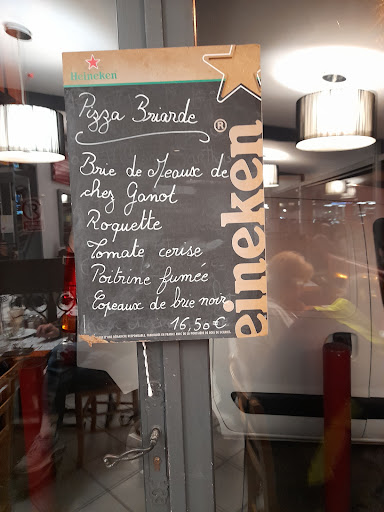 Heineken
Pizza Briarde
Brie de Meaux de
chez Ganot
Roquette
Tomate cerise
Poitrine fumée
Copeaux de brie noir
16,50€
eineken®